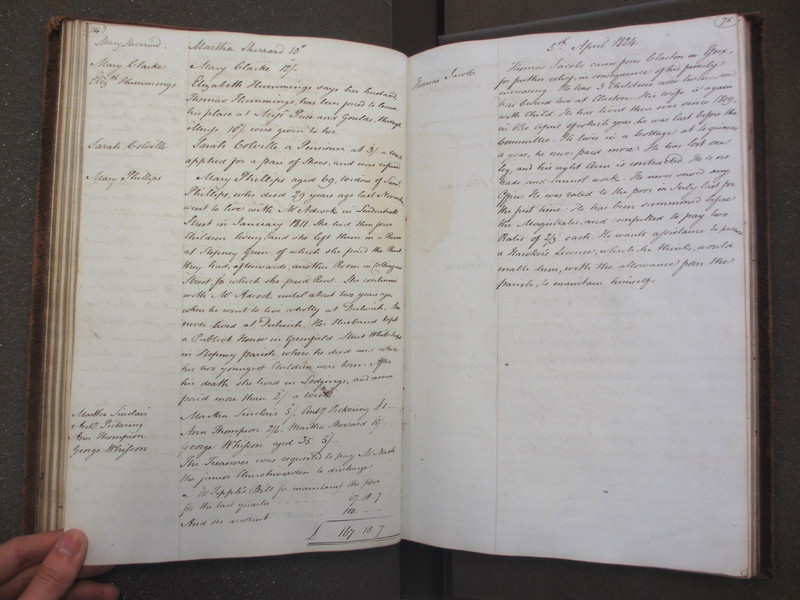 74
Mary Sherrard. Martha Sherrard 10s
Mary Clarke Mary Clarke 12/.
Elizth Hummings Elizabeth Hummings says her husband,
Thomas Hummings, has been forced to leave
his place at Messrs Price and Goulds, through
illness 10/ were given to her
Sarah Colville Sarah Colville a Pensioner at 3/. a week
applied for a pair of Shoes, and was refused
Mary Phillips Mary Phillips aged 69, widow of
Phillips, who died 29 years ago last November
went to live with Mr Adcock in Leadenhall
Street in January 1811. She had then four
Children living, and she left them in a Room
at Stepney Green, of which she paid the Rent.
they had, afterwards, another Room in
Street for which she paid Rent. She continued
with Mr Adcock until about two years ago
when he went to live wholly at Dulwich. She
never lived at Dulwich. Her Husband kept
a Publick House in Greenfield Street Whitechapel
in Stepney parish, where he died and where
her two youngest Children were born. After
his death she lived in Lodgings, and never
paid more than 2/. a week
Martha Sinclair Martha Sinclair 5/. Anty Pickering £1—
Anty Pickering
Ann Thompson Ann Thompson 7/6. Martha Sherrard 10/.
George Whisson George Whisson aged 35. 5/.
The Treasurer was requested to pay Mr Nash
the junior Churchwarden to discharge
a Mr Tipple's Bill for maintaing the poor
for the last quarter 67.18.7
And on account 100.--.--
£ 167.18.7
75
5th April 1824
Thomas Jacobs Thomas Jacobs came from Clacton in Essex,
for further relief, in consequence of his family
increasing. He has 3 Children now living, and
has buried two at Clacton. His wife is again
with Child. He has lived there ever since 1819,
in the April of which year, he was last before the
Committee. He lives in a Cottage at 4 guineas
a year, he never paid more. He has lost one
leg, and his right Arm is contracted. He is no
trade and cannot work. He never served any
Office. He was rated to the poor in July last for
the first time. He has been summoned before
the Magistrates, and compelled to pay two
Rates of 2/3 each. He wants assistance to purchase
a Hawkers Licence, which, he thinks, would
enable him, with the allowance from the
parish, to maintain himself.